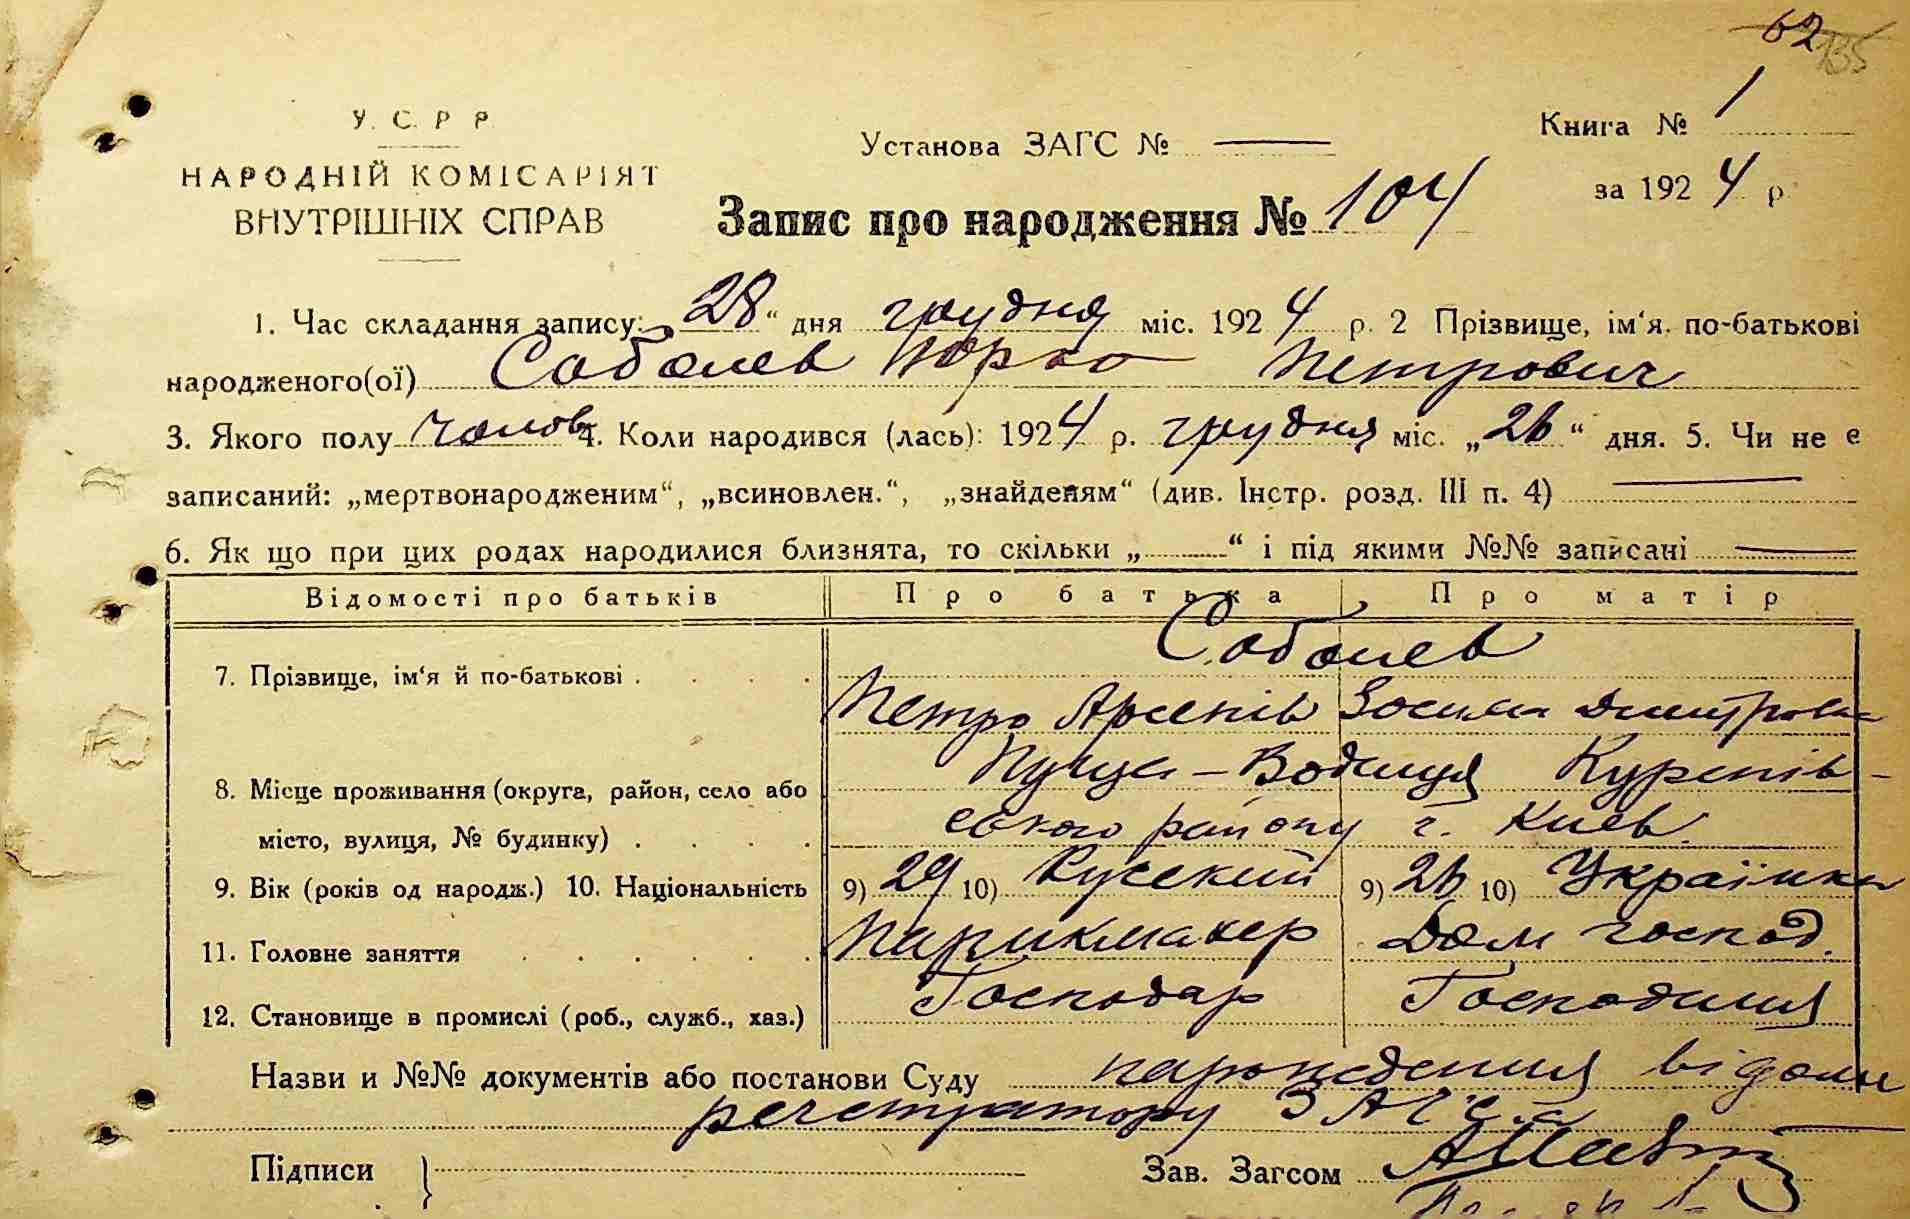 62 135
У. С. Р Р
НАРОДНІЙ КОМІСАРІЯТ
ВНУТРІШНІХ СПРАВ
Установа ЗАГС №
Книга № 1
за 1924 р.
Запис про народження № 104
1. Час складання запису: „28“ дня грудня міс. 1924 р. 2 Прізвище, ім‘я. по-батькові
народженого(ої) Соболев Юрко Петрович
3. Якого полу чолов. 4. Коли народився (лась): 1924 р. грудня міс. „26“ дня. 5. Чи не є
записаний: „мертвонародженим“, „всиновлен.“, „знайденям“ (див. Інстр. розд. III п. 4)
6. Як що при цих родах народилися близнята, то скільки „ “ і під якими №№ записані
Відомості про батьків Про батька Про матір
Соболев
7. Прізвище, ім‘я й по-батькові
Петро Арсенів Зосима Дмитровна
Пуща-Водиця Куренів-
8. Місце проживання (округа, район, село або
ського району г. Киев
місто, вулиця, № будинку)
9. Вік (років од народж.) 10. Національність 9) 29 10) Русский 9) 26 10) Українка
11. Головне заняття Парикмахер Дом господ.
12. Становище в промислі (роб., служб., хаз.) Господар Господиня
Назви и №№ документів або постанови Суду народження відоме
регистратору ЗАГСа
Підписи } Зав. Загсом